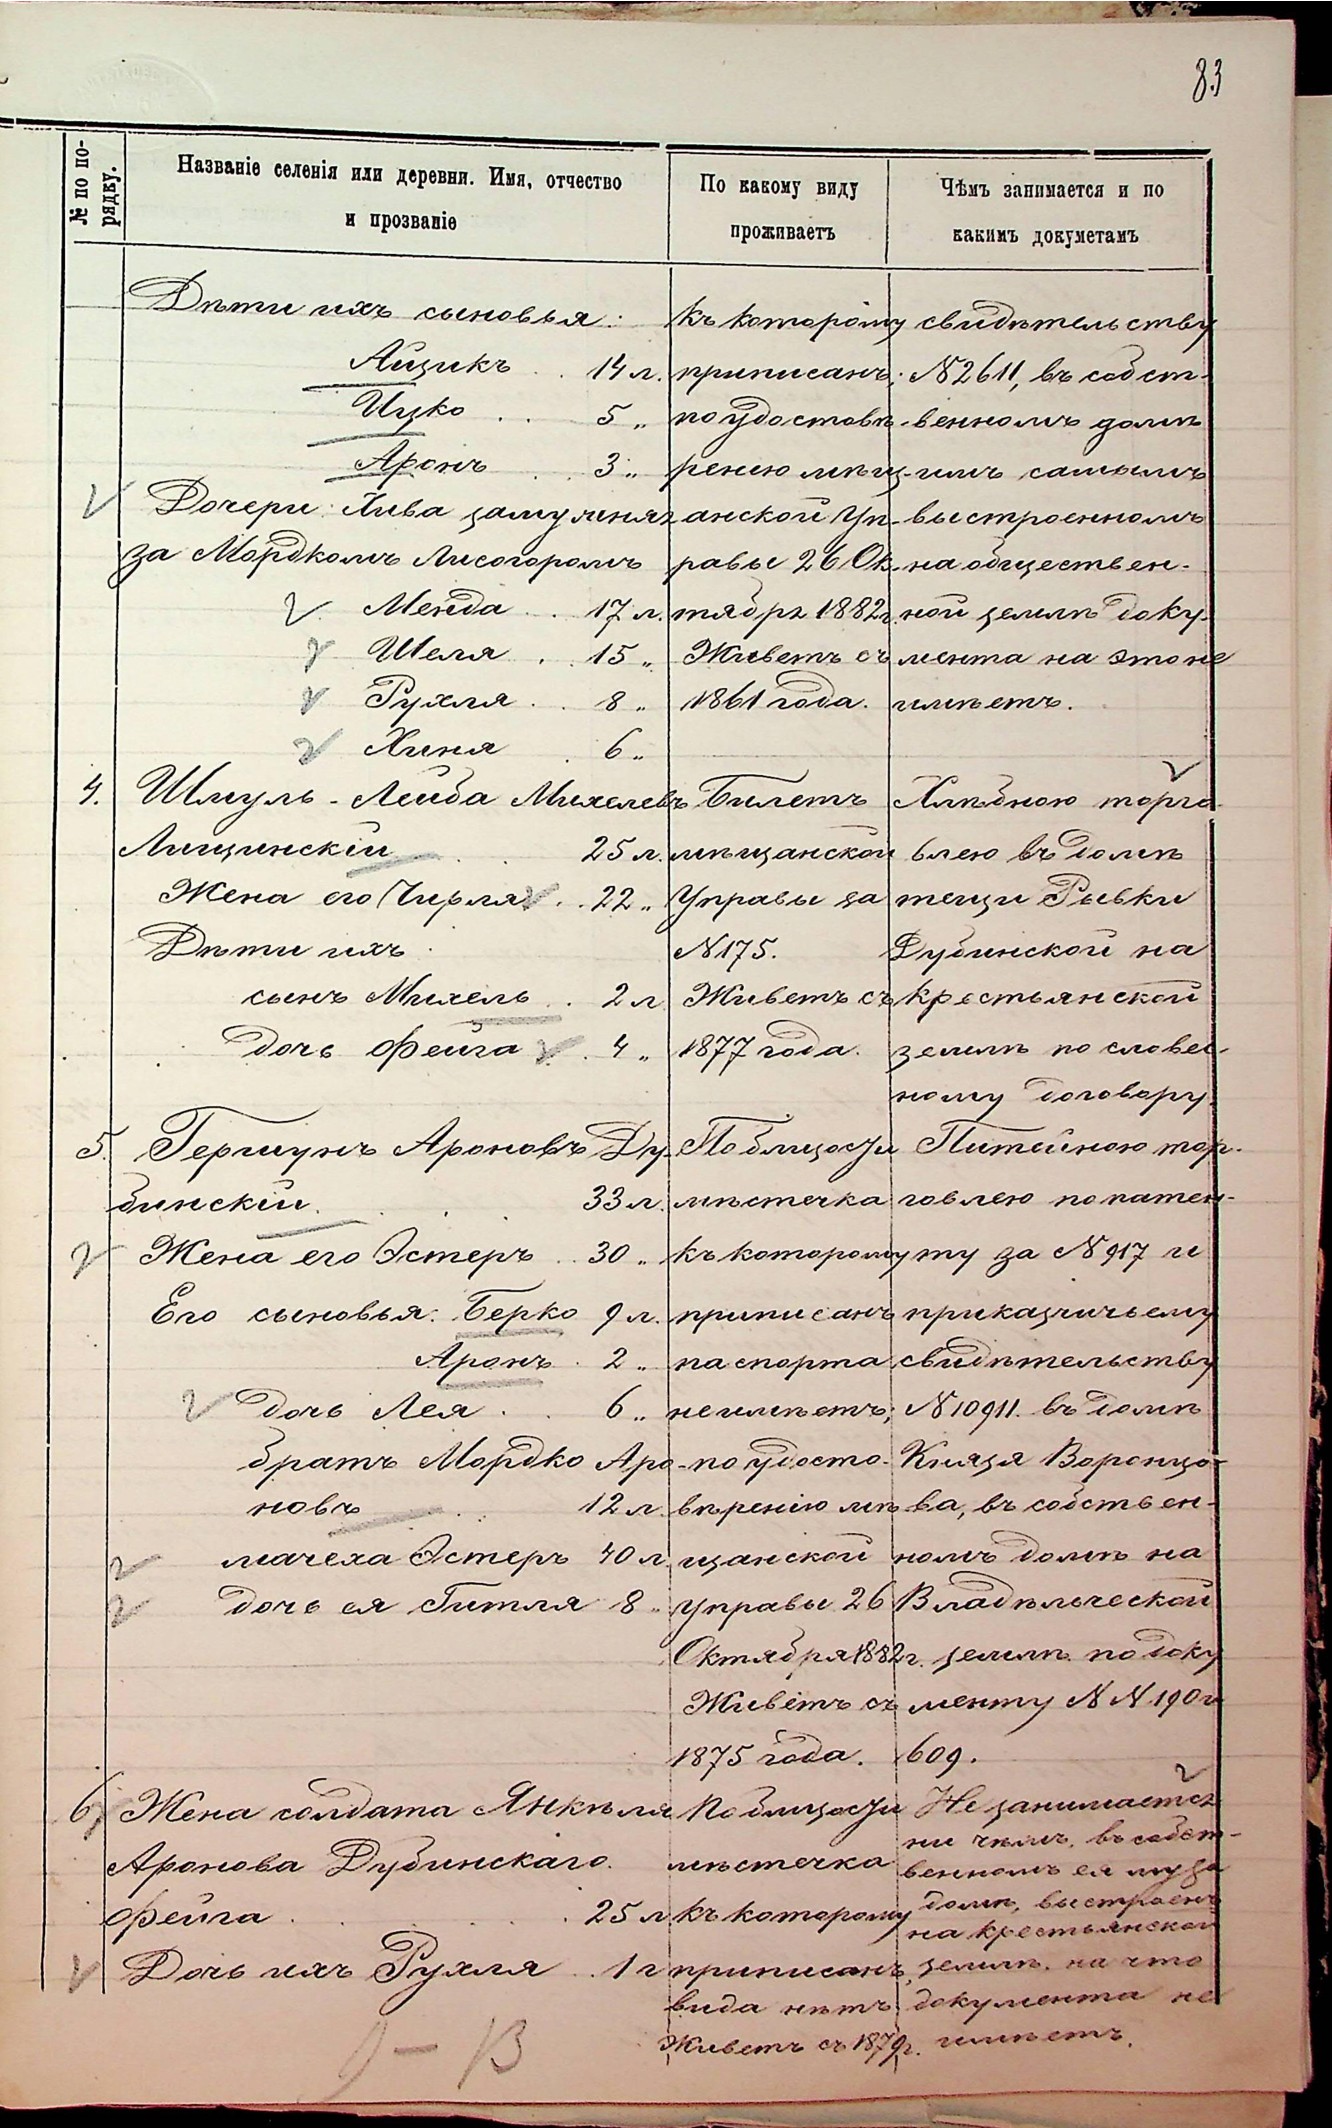 83
№ по по-
рядку.
Названіе селенія или деревни. Имя, отчество
и прозваніе
По какому виду
проживаетъ
Чѣмъ занимается и по
какимъ документамъ
Дѣти ихъ сыновья:
Айзикъ . . 14 л.
Ицко . . 5 „
Аронъ . . 3 „
Дочери: Хива замужняя
за Мордкомъ Лисогоромъ
Менда . . 17 л.
Шеля . . 15 „
Рухля . . 8 „
Хиня . 6 „
къ которому
приписанъ;
по удостовѣ-
ренію мѣщ-
анской Уп-
равы 26 Ок-
тября 1882 г.
Живетъ съ
1861 года.
свидѣтельству
№ 2611, въ собст-
венномъ домѣ
имъ самымъ
выстроенномъ
на обществен-
ной землѣ доку-
мента на это не
имѣетъ.
4. Шмуль-Лейба Михелевъ
Лищинскій . . 25 л.
Жена его Чирля . . 22 „
Дѣти ихъ
сынъ Михель . 2 л.
дочь Фейга . 4 „
Билетъ
мѣщанской
Управы за
№ 175.
Живетъ съ
1877 года.
Хлѣбною торго-
влею въ домѣ
тещи Рывки
Дубинской на
крестьянской
землѣ по словес-
ному договору.
5. Гершунъ Ароновъ Ду-
бинскій . . 33 л.
Жена его Эстеръ . . 30 „
Его сыновья: Берко 9 л.
Аронъ . 2 „
дочь Лея . . 6 „
братъ Мордко Аро-
новъ . . 12 л.
мачеха Эстеръ 40 л.
дочь ея Гитля 8 „
По близости
мѣстечка
къ которому
приписанъ
паспорта
не имѣетъ;
по удосто-
вѣренію мѣ
щанской
Управы 26
Октября 1882 г.
Живетъ съ
1875 года.
Питейною тор-
говлею по патен-
ту за № 917 и
приказчичьему
свидѣтельству
№ 10911. въ домѣ
Князя Воронцо-
ва, въ собствен-
номъ домѣ на
Владѣльческой
землѣ по доку
менту №№ 190 и
609.
6, Жена солдата Янкеля
Аронова Дубинскаго
Фейга . . 25 л.
Дочь ихъ Рухля . . 1 г
По близости
мѣстечка
къ которому
приписанъ,
вида нѣтъ
Живетъ съ 1879 г.
Не занимается
ни чѣмъ, въ собст-
венномъ ея мужа
домѣ, выстроенъ
на крестьянской
землѣ, на что
документа не
имѣетъ.
9 – 13